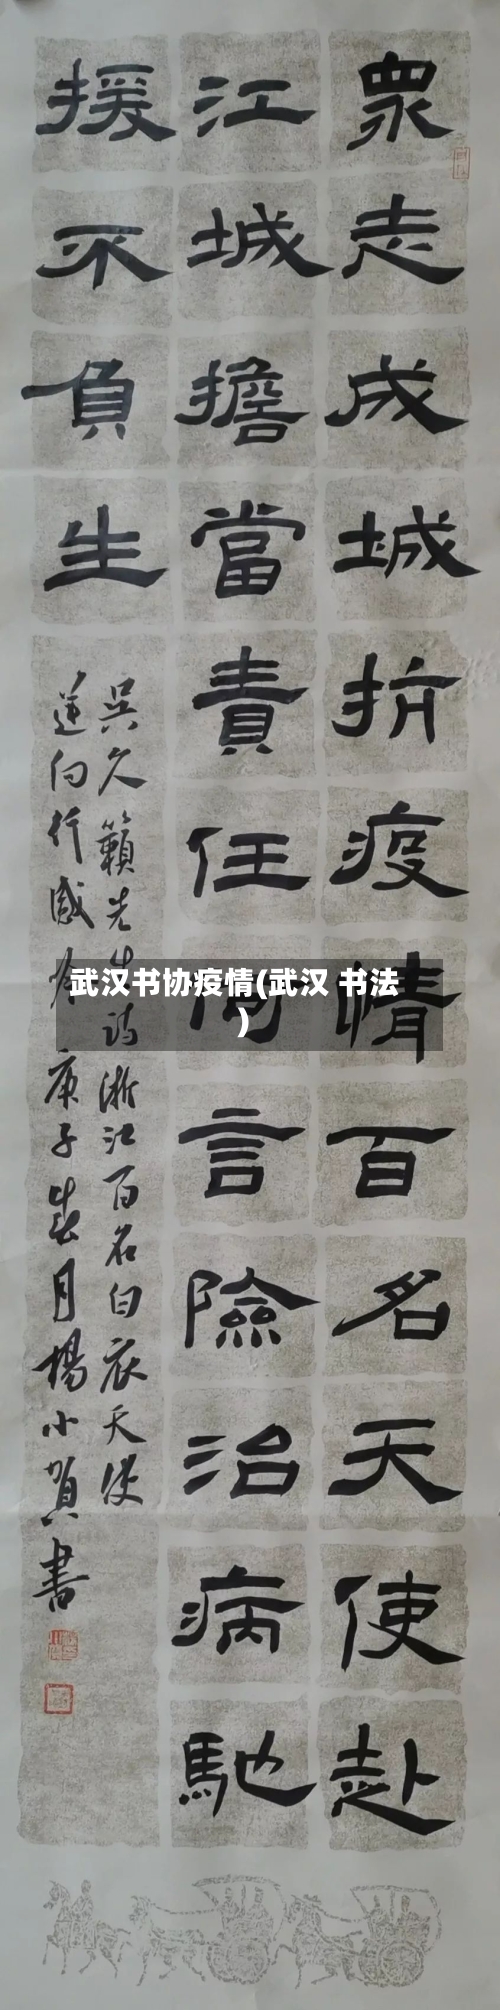 眾志成城抗疫情百名天使赴
江城擔當責任何言險治病馳
援不負生
吳久籟先生詩浙江百名白衣天使
逆向行感吟庚子春月楊小賀書
武汉书协疫情(武汉 书法
)